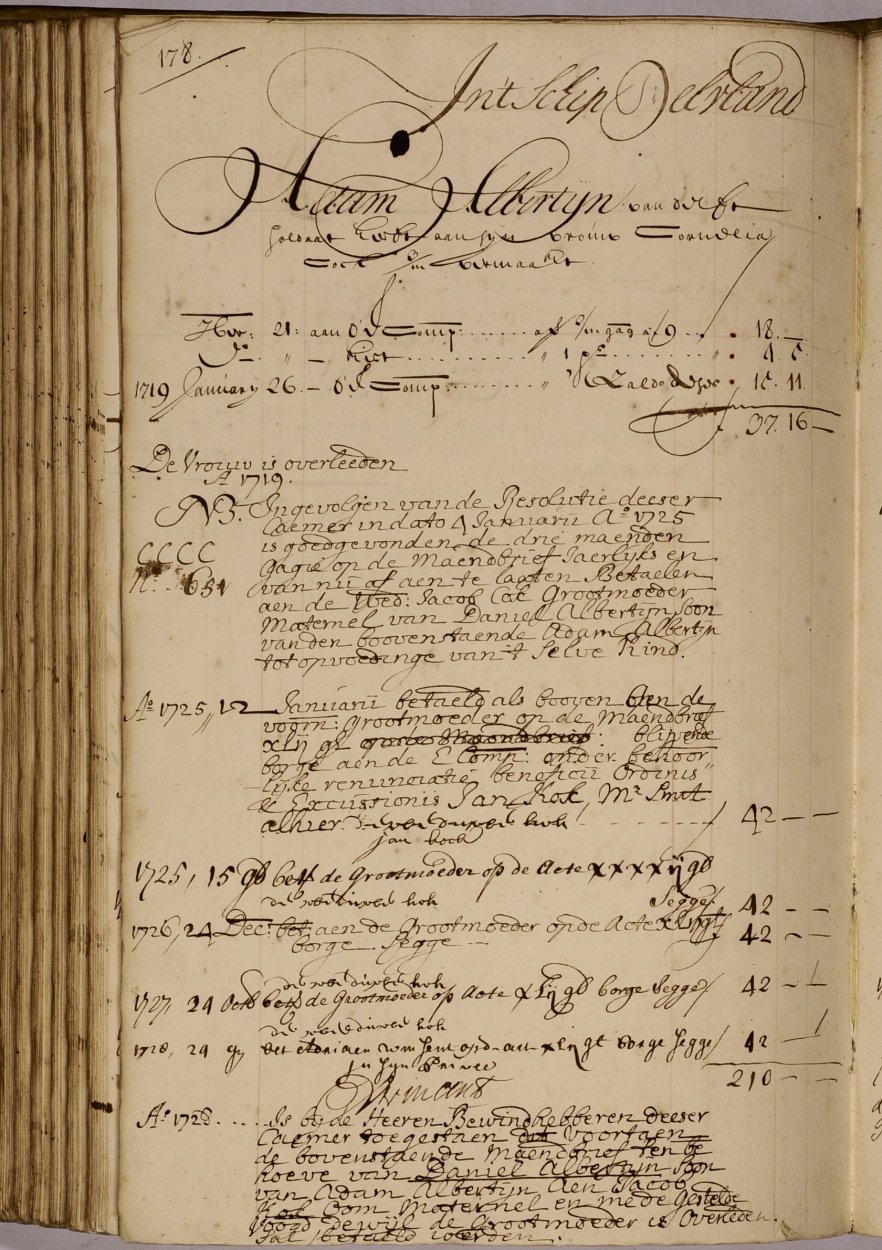 178.
Int Schip Delvland
Adam Albertyn van delft
soldaat heeft aan syn vrouw Cornelia
Cock 3/m vermaakt
21: aan d'E Comp: 2/m gag a f 9 18. —
Do. „ — kist „ 1 ps „ 4. 5.
1719 January 26. — d'E Comp: 15. 11
37. 16 —
De Vrouw is overleeden
Ao 1719.
NB: Ingevolgen van de Resolutie deeser
Caemer in dato 4 Januarii Ao 1725
is goedgevonden de drie maenden
CCCC
gagie op de Maendbrief Jaerlyks en
No. 651
van nu af aen te laaten Betaelen
aen de Wed: Jacob Cok Grootmoeder
Maternel van Daniel Albertyn Soon
van den boovenstaende Adam Albertyn
tot opvoedinge van 't Selve Kind.
Ao 1725 „ 12 Januarii betaeld als booven aen de
voorn: Grootmoeder op de Maendbrief
xlij gl op de Maendbrief: blijvende
borge aen de E Comp: onder behoor-
lijke renunciatie beneficii Ordinis
& Excussionis Jan Kok, Mr Smit
alhier. de weeduwee kok 42 — —
jan kock
1725, 15 bett de Grootmoeder op de Acte xxxxij gl
de weeduwee kok Segge 42 — —
1726, 24 Dec: bet: aen de Grootmoeder op de Acte xlij gl
borge. Segge 42 — —
de weeduwee kok
1727, 24 Octb bett de Grootmoeder op Acte xlij gl borge Segge 42 — 1
de weeduwee kok
1728, 29 op d'acte xlij gl borge segge 42 — 1
in syn Privee
210 — —
Ao 1728. Is by de Heeren Bewindhebberen deeser
Caemer toegestaen dat voortaen
de bovenstaende Maendbrief ten be
hoeve van Daniel Albertyn Soon
van Adam Albertijn aen Jacob
Kok Oom Maternel en mede Gestelde
Voogd dewijl de Grootmoeder is Overleden.
Sal betaeld werden.